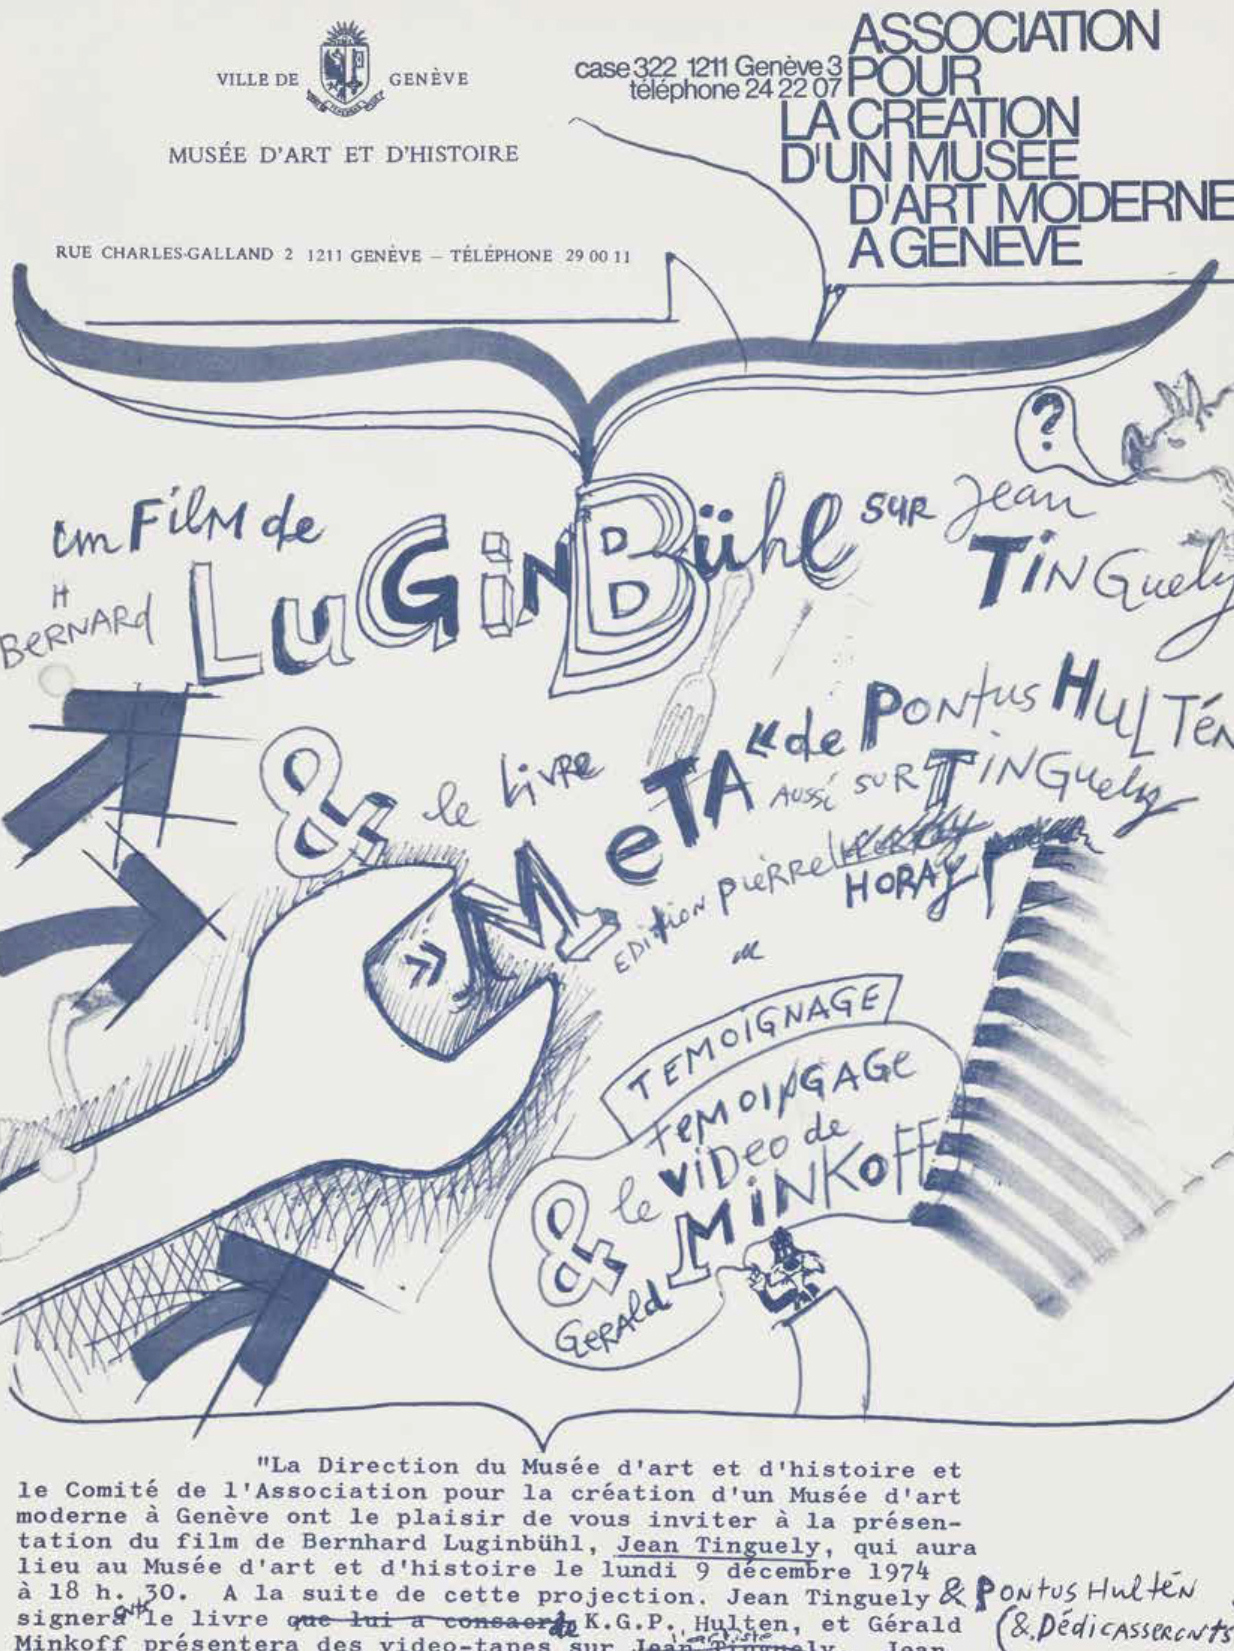 VILLE DE GENÈVE
MUSÉE D'ART ET D'HISTOIRE
RUE CHARLES-GALLAND 2 1211 GENÈVE — TÉLÉPHONE 29 00 11
case 322 1211 Genève 3
téléphone 24 22 07
ASSOCIATION
POUR
LA CREATION
D'UN MUSEE
D'ART MODERNE
A GENEVE
?
un FiLM de
H
BeRNARd LuGiNBühl sur Jean
TiNGuely
& le LiVRe
»MeTA« de PONtus HULTén
AUSSi SUR TiNGuely
EDition pieRRe
HORAY
TEMOIGNAGE
& le ViDeo de
GeRAld MiNKOFF
"La Direction du Musée d'art et d'histoire et
le Comité de l'Association pour la création d'un Musée d'art
moderne à Genève ont le plaisir de vous inviter à la présen-
tation du film de Bernhard Luginbühl, Jean Tinguely, qui aura
lieu au Musée d'art et d'histoire le lundi 9 décembre 1974
à 18 h. 30. A la suite de cette projection. Jean Tinguely & PONtus Hultén
signeront le livre que lui a consacré de K.G.P. Hulten, et Gérald (& DédiCASSERENTS
Minkoff présentera des video-tapes sur Jean Tinguely. Jean